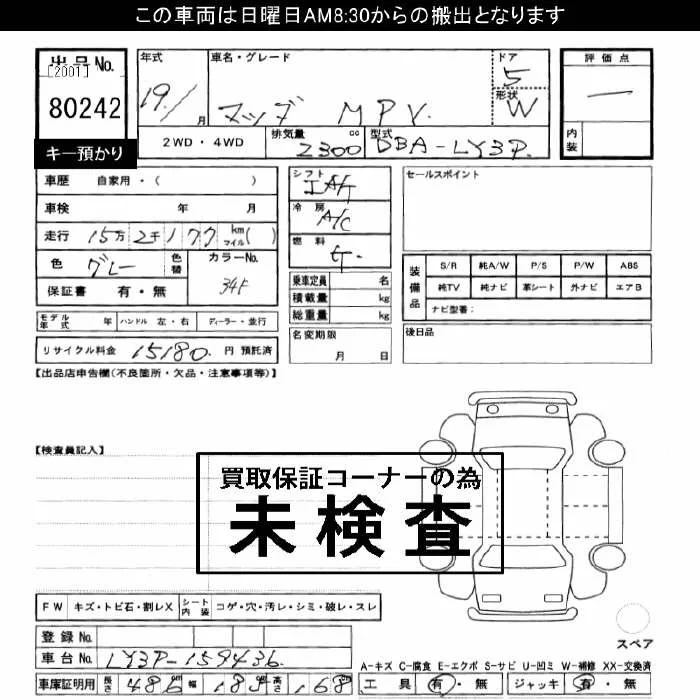 この車両は日曜日AM8:30からの搬出となります
出品No.
[2001]
80242
キー預かり
年式
19.1月
車名・グレード
マツダ MPV.
ドア
5
形状
W
評価点
内装
2WD・4WD
排気量
2300cc
型式
DBA-LY3P.
車歴 自家用・( )
車検 年 月
走行 15万2千177 km マイル( )
色 グレー 色替 カラーNo. 34F
保証書 有・無
シフト
IAT
冷房
A/C
燃料
ガ.
乗車定員 名
積載量 kg
総重量 kg
セールスポイント
装備品
S/R 純A/W P/S P/W ABS
純TV 純ナビ 革シート 外ナビ エアB
ナビ型番:
モデル年式 年 ハンドル 左・右 ディーラー・並行
名変期限
月 日
後日品
リサイクル料金 15180. 円 預託済
【出品店申告欄(不良箇所・欠品・注意事項等)】
【検査員記入】
買取保証コーナーの為
未検査
FW キズ・トビ石・割レX シート内装 コゲ・穴・汚レ・シミ・破レ・スレ
スペア
登録No.
車台No. LY3P-159436
A-キズ C-腐食 E-エクボ S-サビ U-凹ミ W-補修 XX-交換済
車庫証明用 長さ 486 幅 185 高さ 168
工具 有・無 ジャッキ 有・無